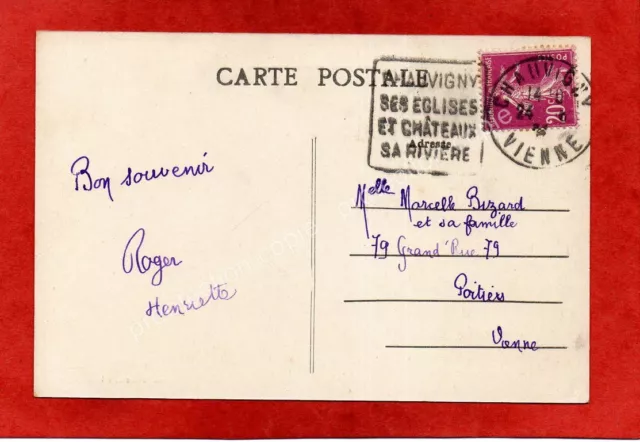 CARTE POSTALE
CHAUVIGNY
SES EGLISES
ET CHÂTEAUX
SA RIVIERE
CHAUVIGNY
VIENNE
20c
Adresse
Bon souvenir
Roger
Henriette
Melle Marcelle Bizard
et sa famille
79 Grand'Rue 79
Poitiers
Vienne